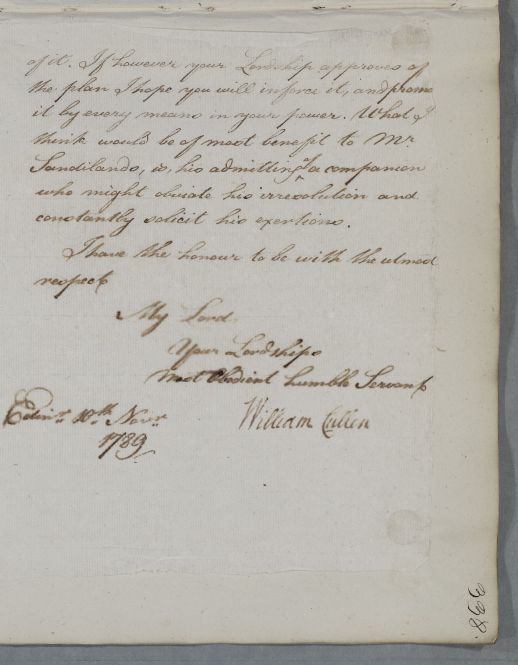 of it. If however your Lordship approves of
the plan I hope you will inforce it, and promo
it by every means in your power. What I
think would be of most benefit to Mr.
Sandilands, is, his admitting of a companion
who might obviate his irresolution and
constantly solicit his exertions.
I have the honour to be with the utmost
respect
My Lord
Your Lordships
most Obedient humble Servant
Edinr. 10th. Novr.
William Cullen
1789
338.